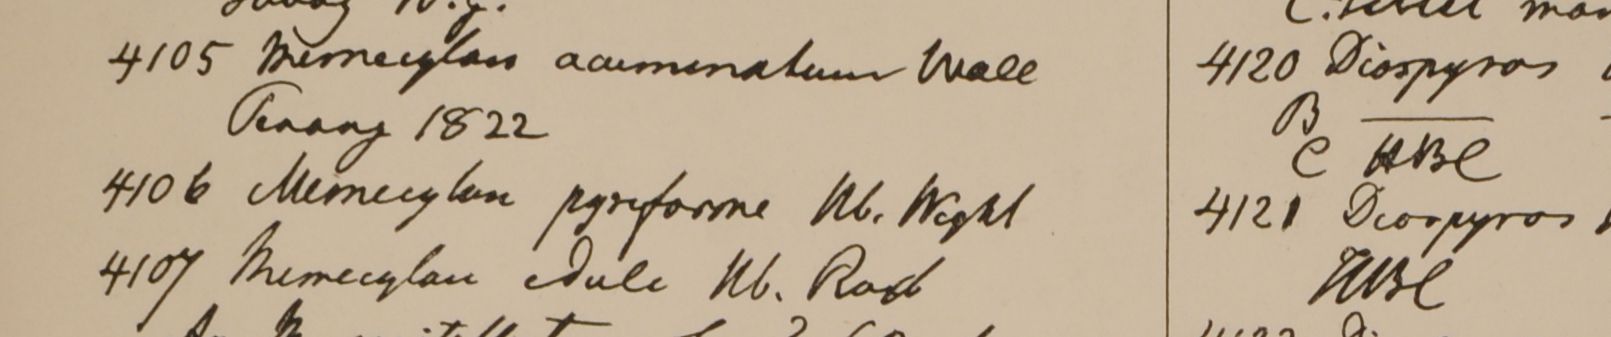 4105 Memecylon acuminatum Wall
Penang 1822
4106 Memecylon pyriforme Hb. Wight
4107 Memecylon edule Hb. Roxb
4120 Diospyros
B
C HBC
4121 Diospyros
HBC